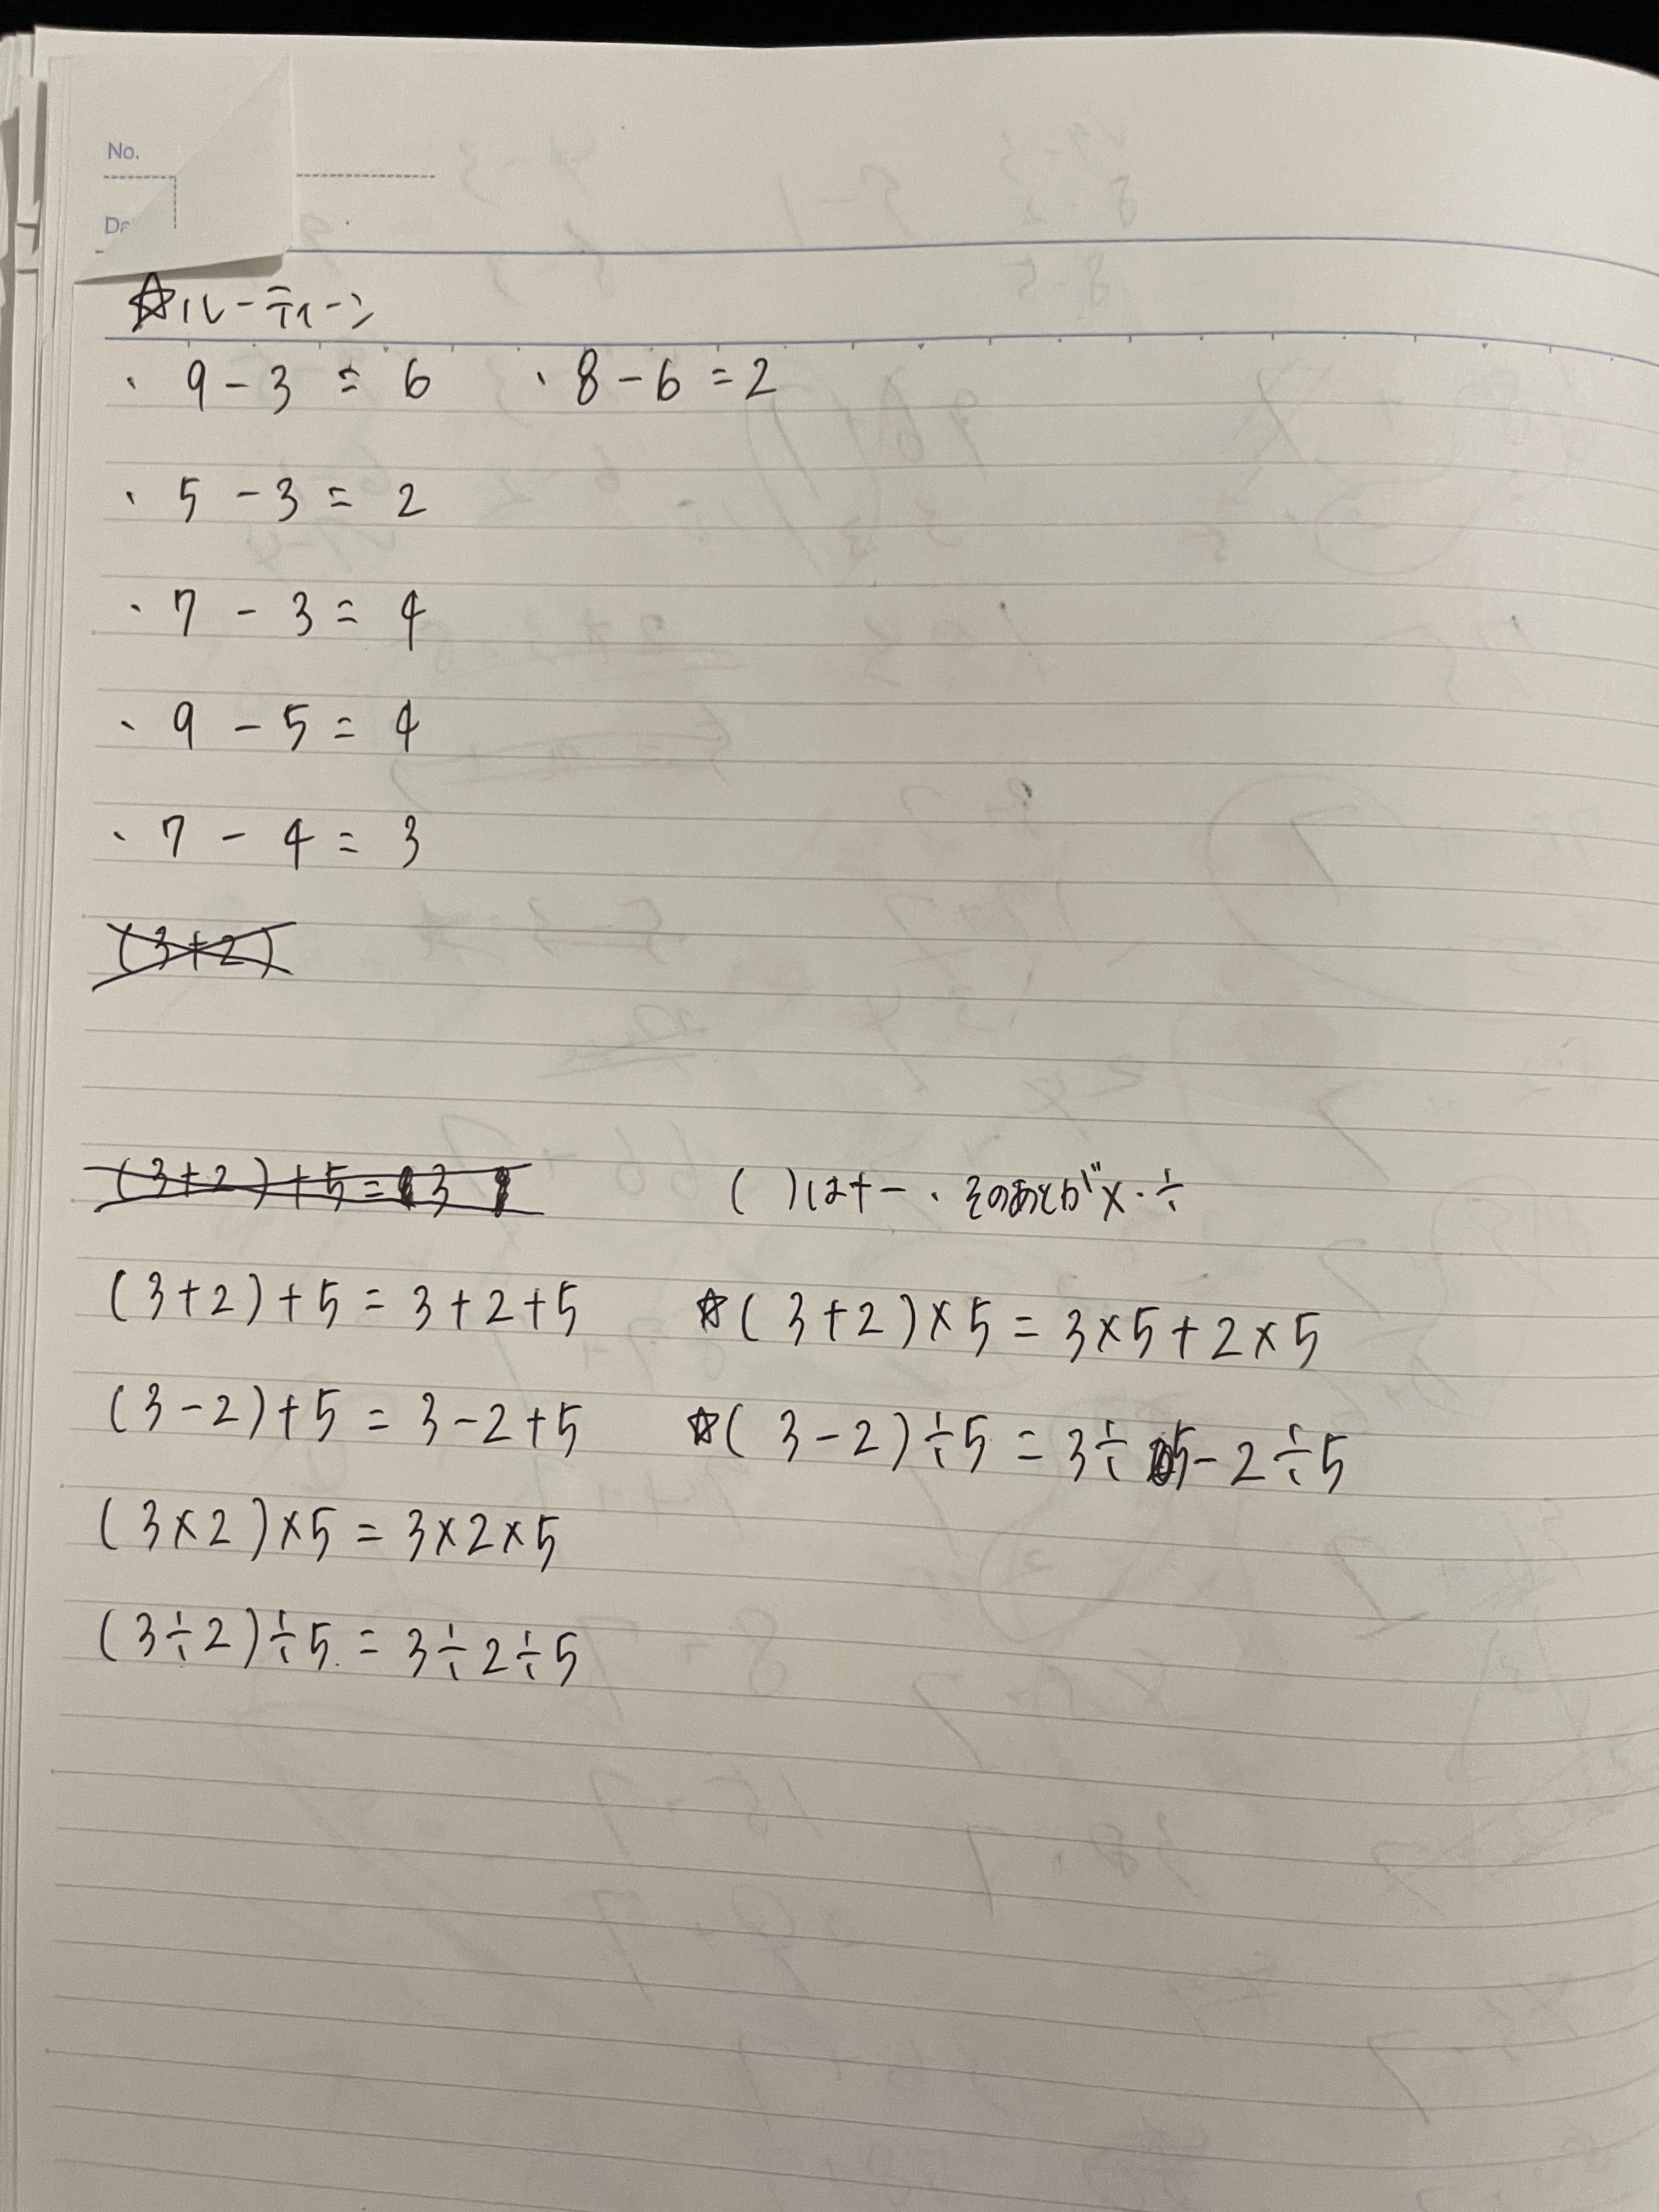 No.
Da
☆ルーティーン
・ 9 - 3 = 6 ・ 8 - 6 = 2
・ 5 - 3 = 2
・ 7 - 3 = 4
・ 9 - 5 = 4
・ 7 - 4 = 3
(3+2)
(3+2)+5=13
( )は+-・そのあとが×・÷
(3+2)+5=3+2+5
☆(3+2)×5=3×5+2×5
(3-2)+5=3-2+5
☆(3-2)÷5=3÷5-2÷5
(3×2)×5=3×2×5
(3÷2)÷5=3÷2÷5